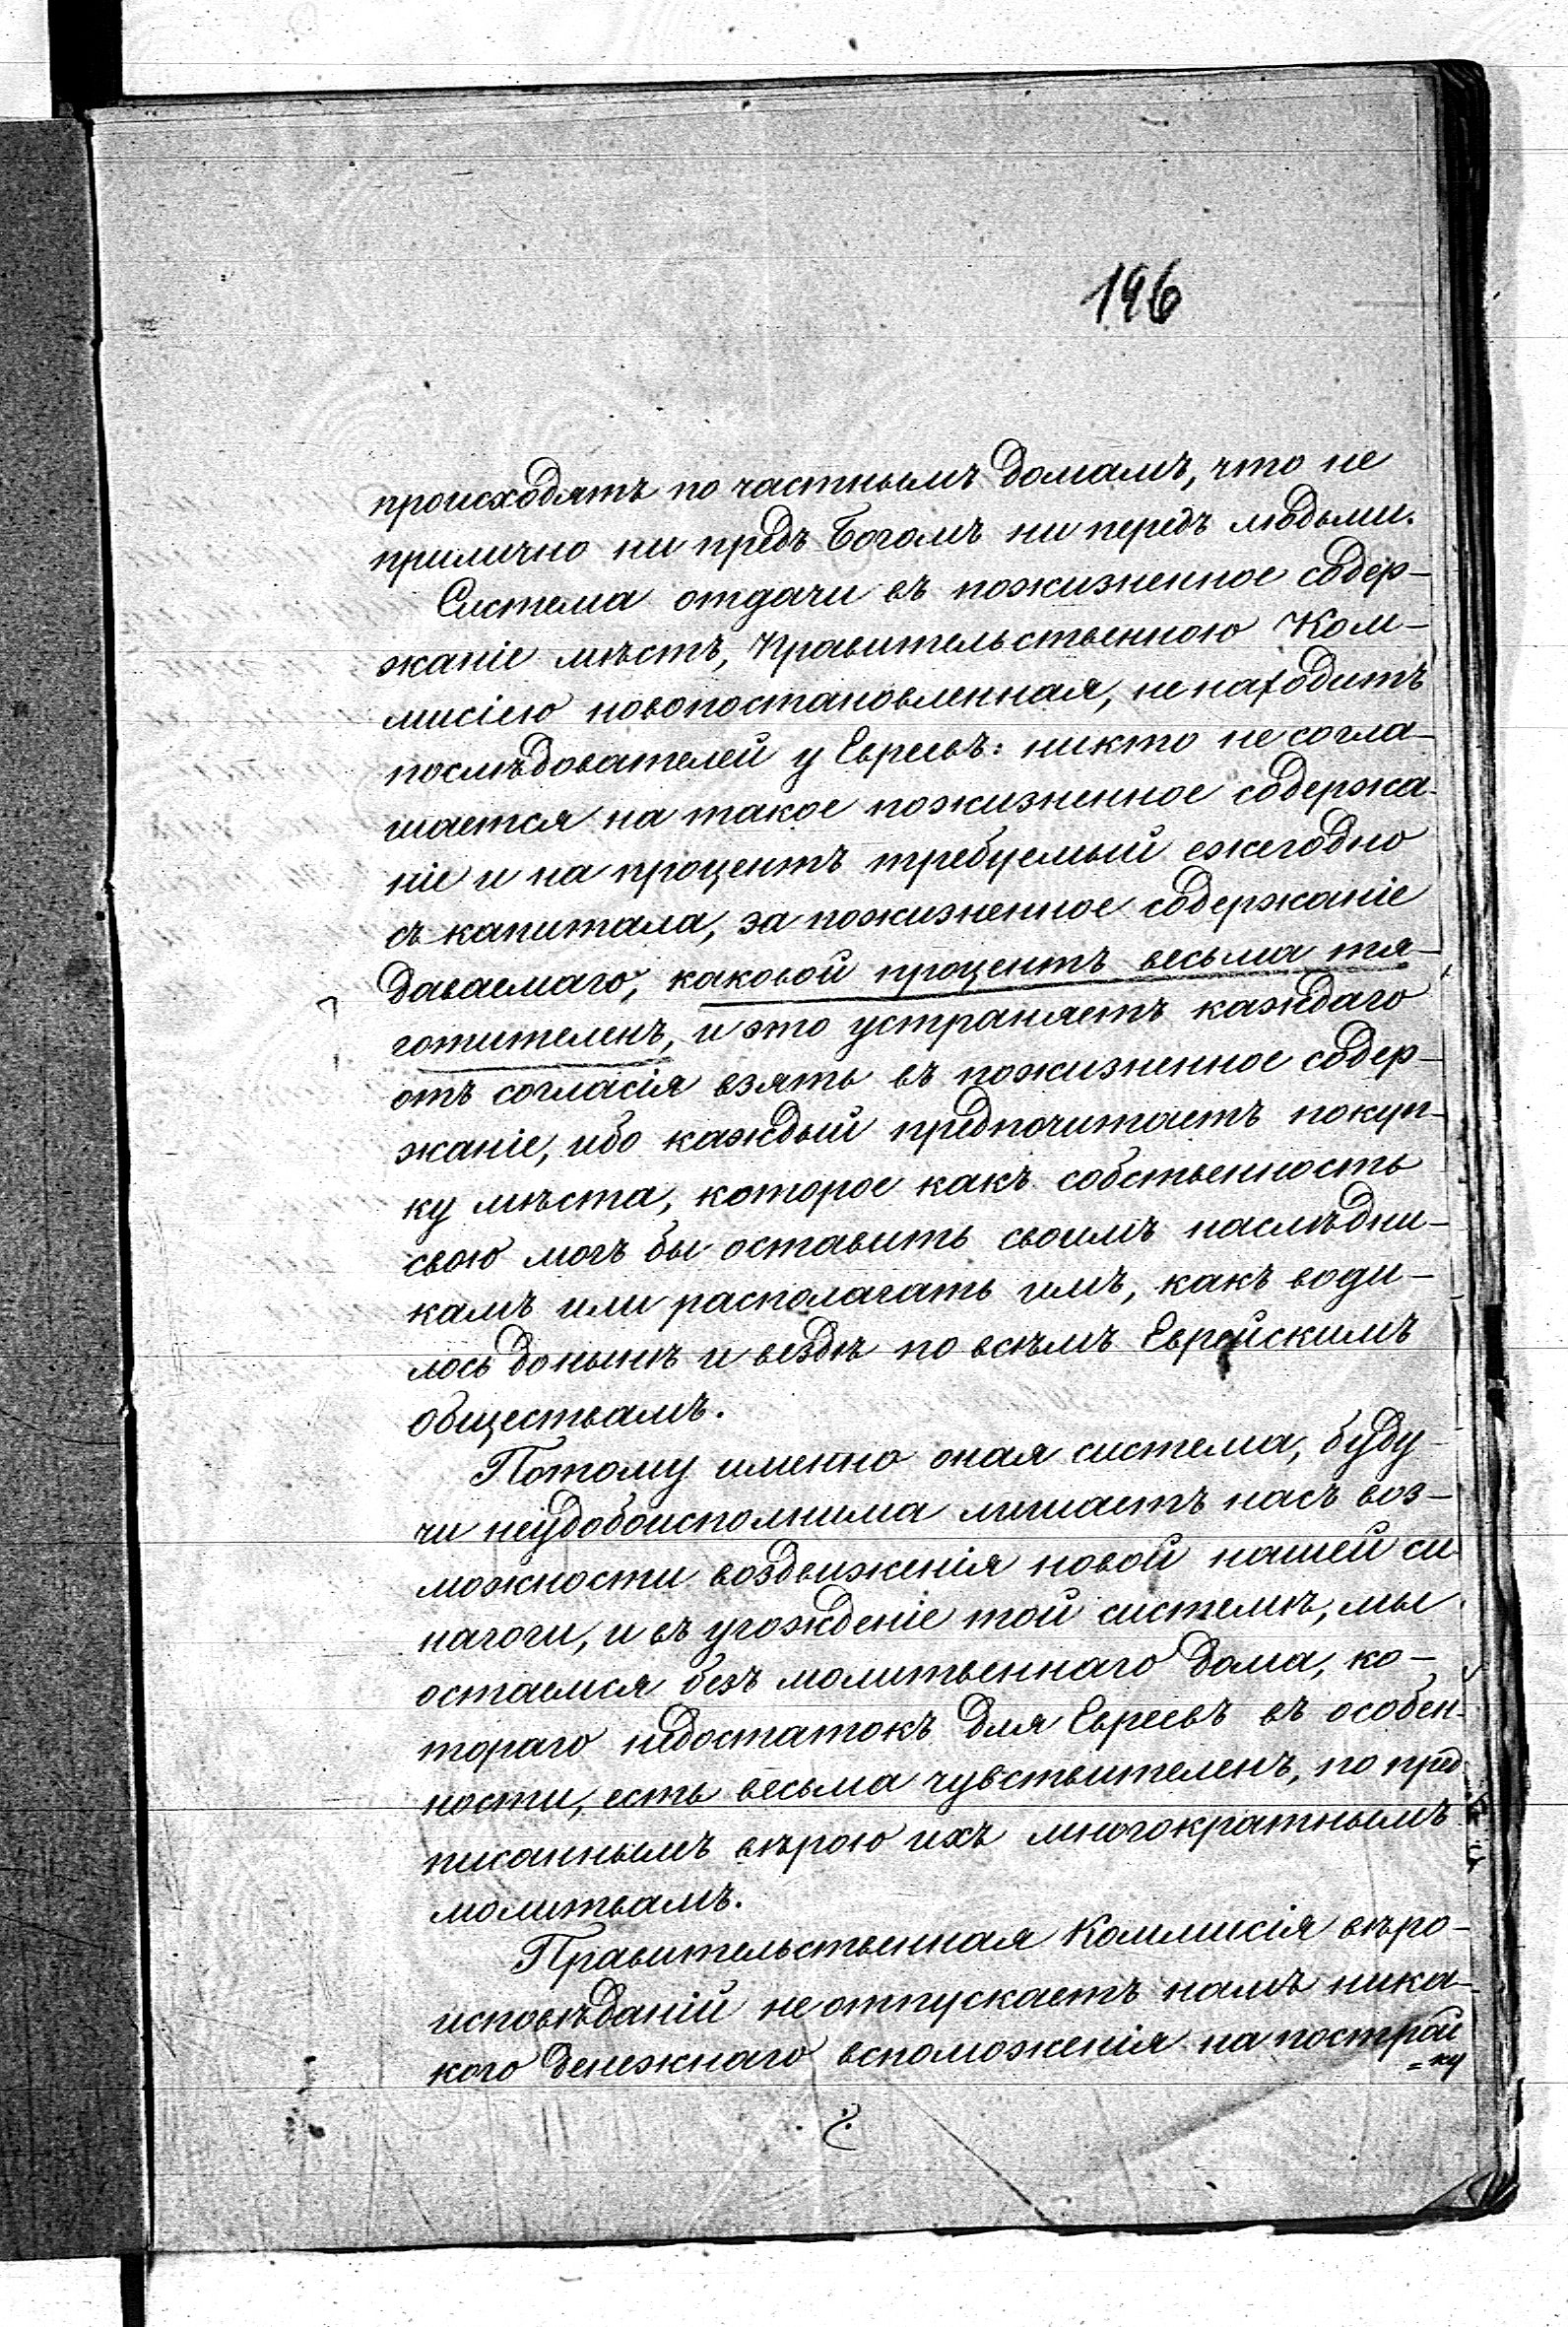 196
происходятъ по частнымъ домамъ, что не
прилично ни предъ Богомъ ни передъ людьми.
Система отдачи въ пожизненное содер-
жаніе мѣстъ, Правительственною Ком-
мисіею новопостановленная, не находитъ
послѣдователей у Евреевъ: никто не согла-
шается на такое пожизненное содержа-
ніе и на процентъ требуемый ежегодно
съ капитала, за пожизненное содержаніе
даваемаго, каковой процентъ весьма тя-
готителенъ, и это устраняетъ каждаго
отъ согласія взять въ пожизненное содер-
жаніе, ибо каждый предпочитаетъ покуп-
ку мѣста, которое какъ собственность
свою могъ бы оставить своимъ наслѣдни-
камъ или располагать имъ, какъ води-
лось донынѣ и вездѣ по всѣмъ Еврейскимъ
обществамъ.
Потому именно оная система, буду-
чи неудобоисполнима лишаетъ насъ воз-
можности воздвиженія новой нашей си-
нагоги, и въ угожденіе той системѣ, мы
остаемся безъ молитвеннаго дома, ко-
тораго недостатокъ для Евреевъ въ особен-
ности, есть весьма чувствителенъ, по пред-
писаннымъ вѣрою ихъ многократнымъ
молитвамъ.
Правительственная Коммисія вѣро-
исповѣданій не отпускаетъ намъ ника-
кого денежнаго вспоможенія на построй
=ку